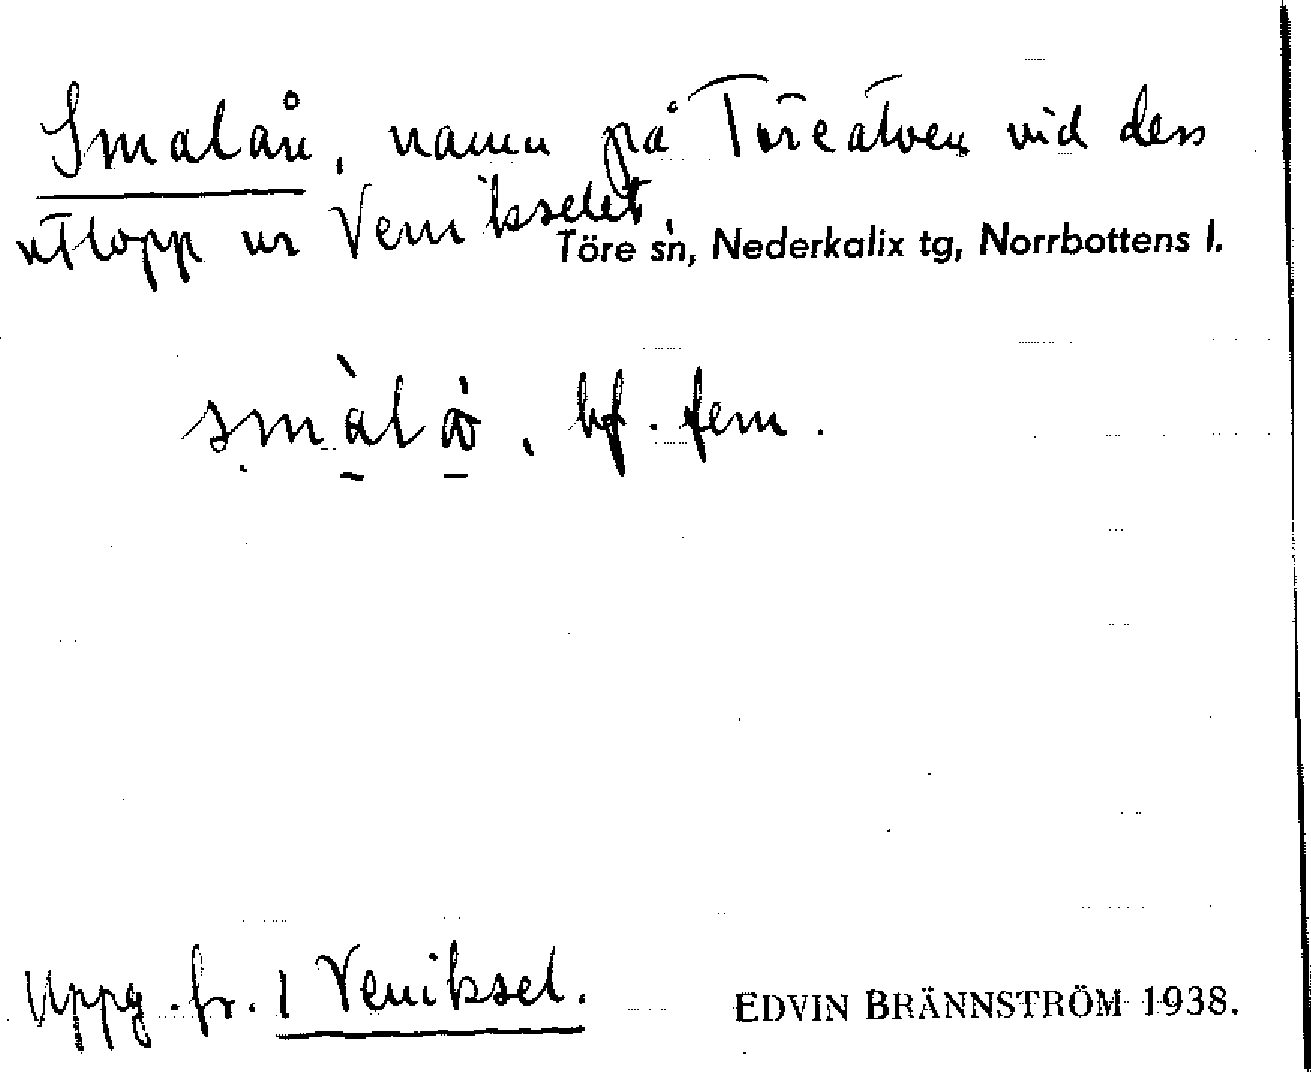 Smalån, namn på Töreälven vid dess
utlopp ur Venikselet.
Töre sn, Nederkalix tg, Norrbottens l.
bf. fem.
Uppg. fr. 1 Veniksel.
EDVIN BRÄNNSTRÖM 1938.